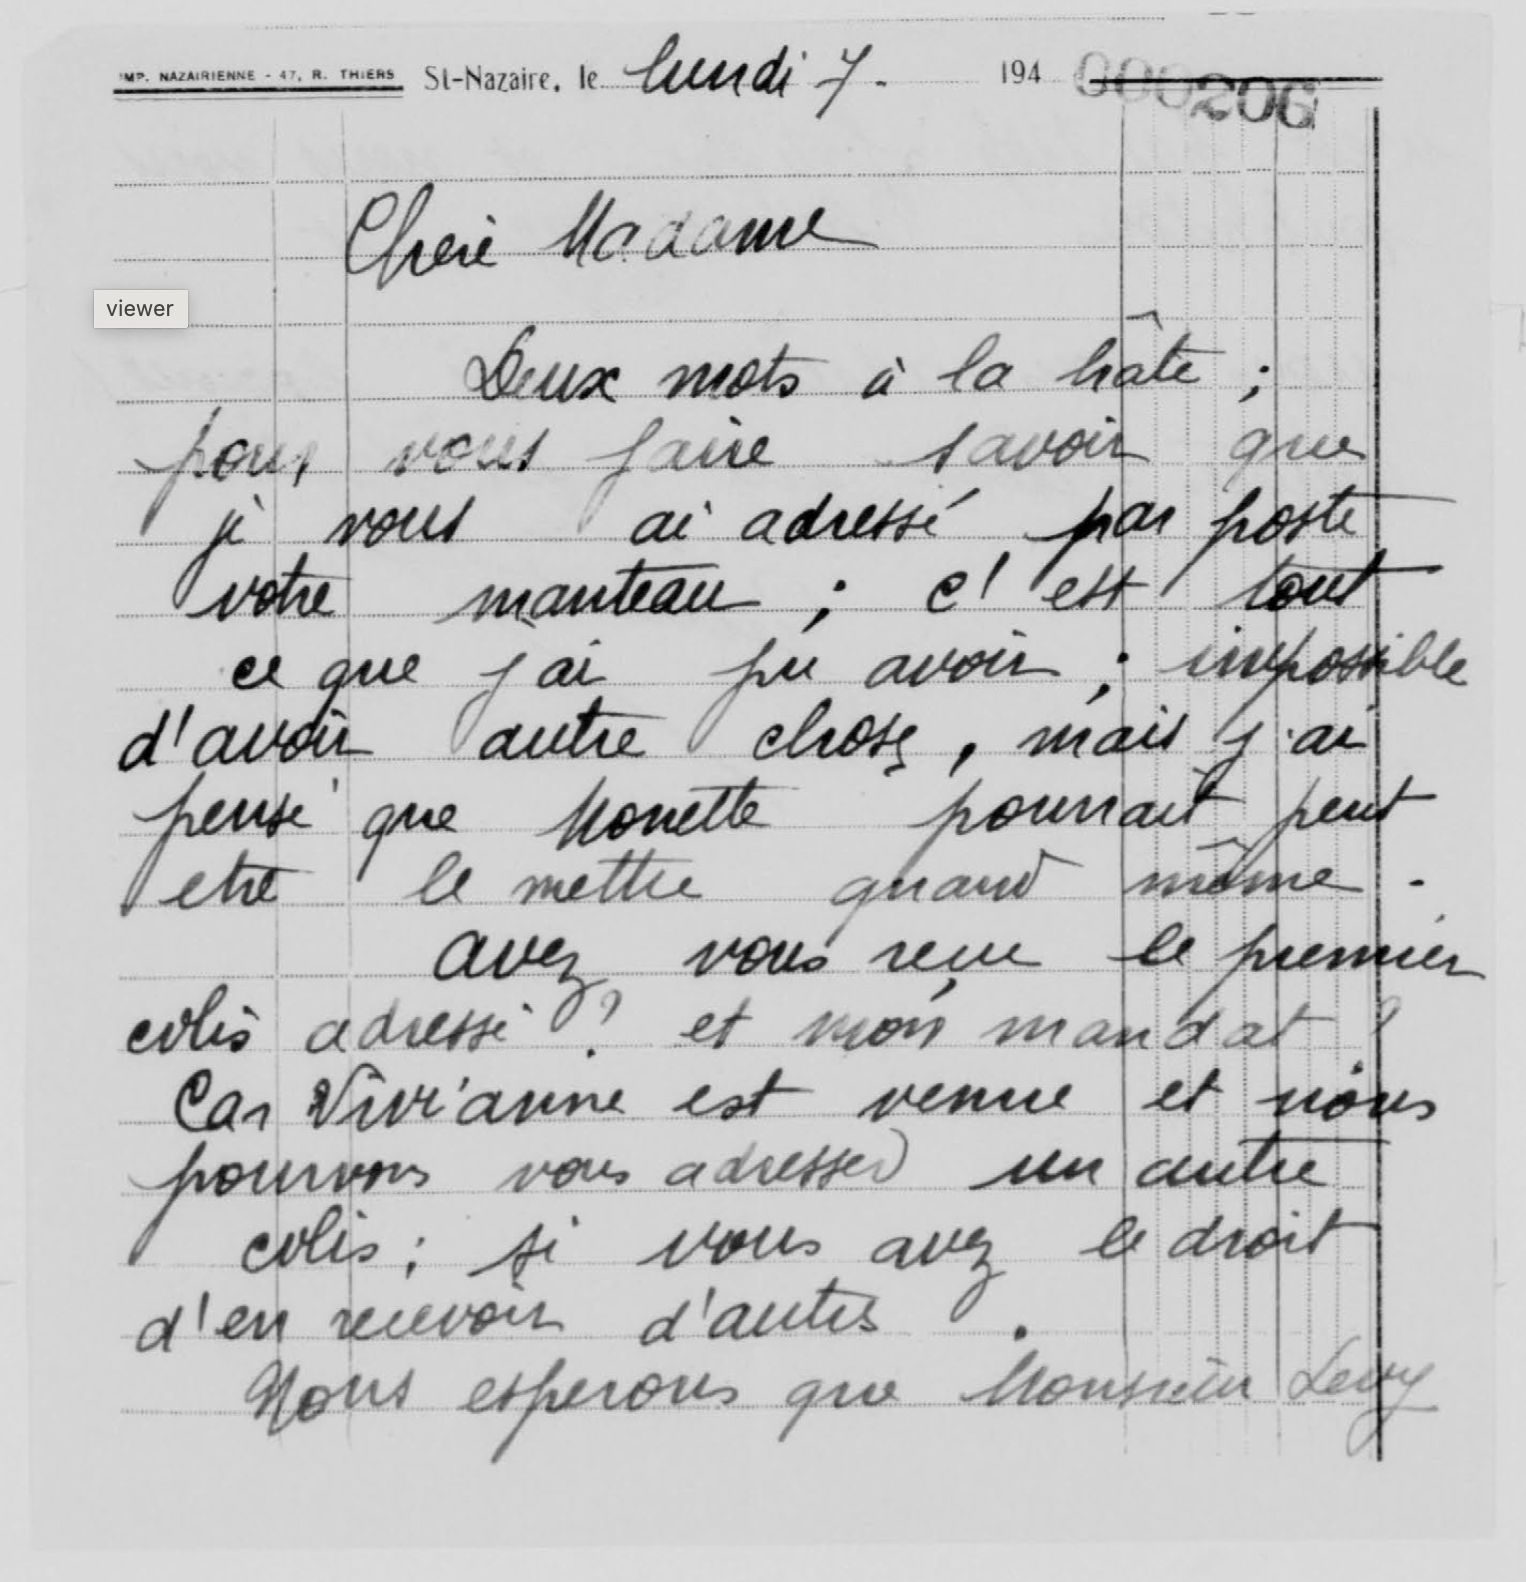 IMP. NAZAIRIENNE - 47, R. THIERS St-Nazaire, le lundi 7. 194 000206
Chère Madame
viewer
Deux mots à la hâte ;
pour vous faire savoir que
je vous ai adressé par poste
votre manteau ; c'est tout
ce que j'ai pu avoir ; impossible
d'avoir autre chose, mais j'ai
pensé que Monette pourrait peut
etre le mettre quand même .
avez vous reçue le premier
colis adressé ? et mon mandat ?
Car Vivianne est venue et nous
pourrons vous adresser un autre
colis ; si vous avez le droit
d'en recevoir d'autres .
Nous esperons que Monsieur Levy